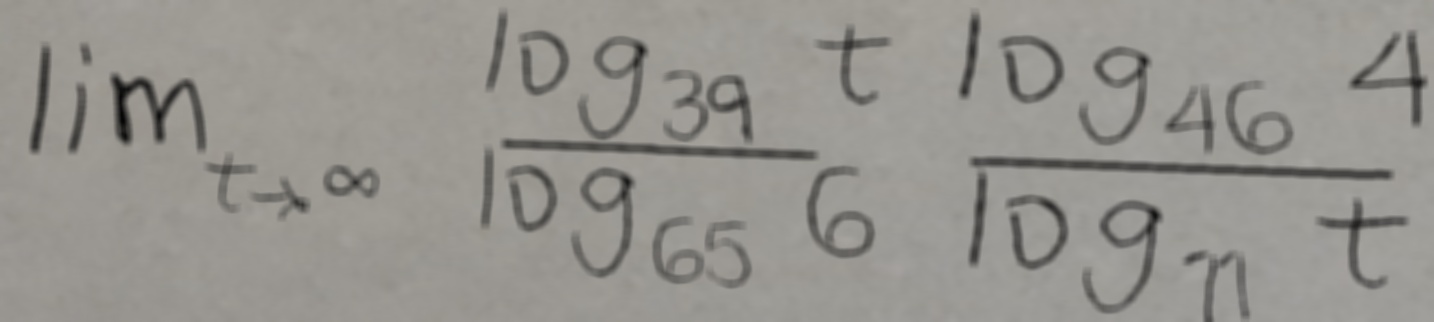 lim_{t→∞} \frac{log_{39} t}{log_{65} 6} \frac{log_{46} 4}{log_{71} t}